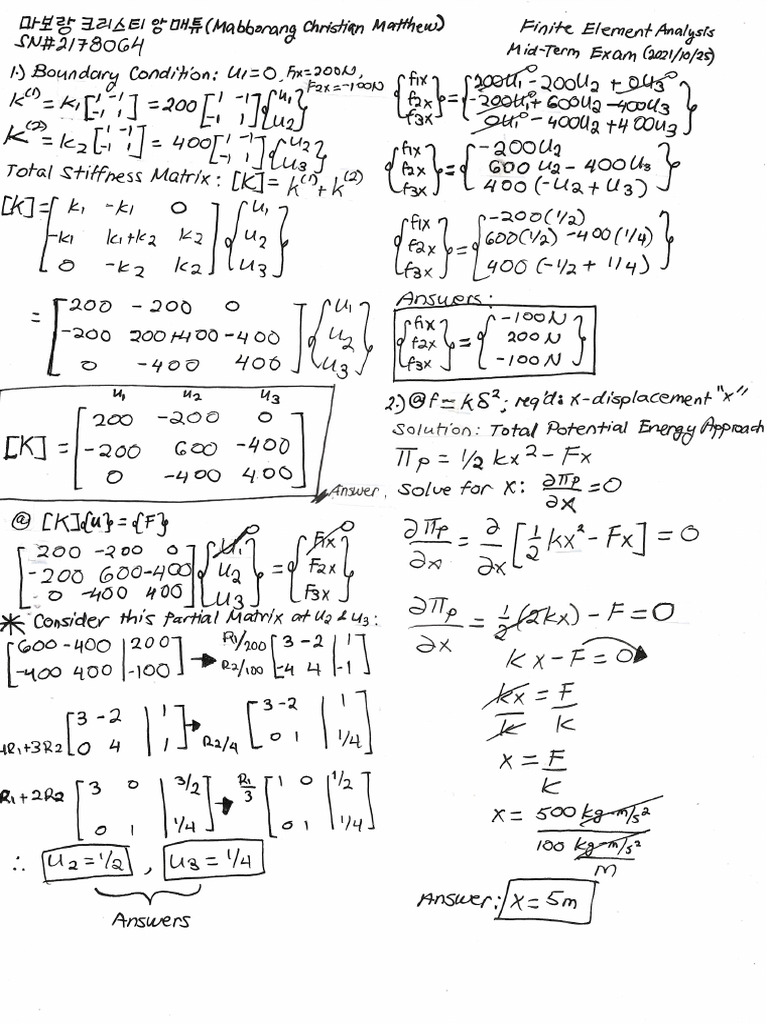 마보랑 크리스티 앙 매튜 (Mabborang Christian Matthew)
SN#2178064
Finite Element Analysis
Mid-Term Exam (2021/10/25)
1.) Boundary Condition: U1=0, F1x=200N,
F2x=-100N
k⁽¹⁾ = k1 [1 -1; -1 1] = 200 [1 -1; -1 1] {u1; u2}
K⁽²⁾ = k2 [1 -1; -1 1] = 400 [1 -1; -1 1] {u2; u3}
Total Stiffness Matrix: [K] = k⁽¹⁾ + k⁽²⁾
[K] = [k1 -k1 0; -k1 k1+k2 k2; 0 -k2 k2] {u1; u2; u3}
= [200 -200 0; -200 200+400 -400; 0 -400 400] {u1; u2; u3}
u1 u2 u3
[K] = [200 -200 0; -200 600 -400; 0 -400 400]
Answer.
@ [K]{u} = {F}
[200 -200 0; -200 600 -400; 0 -400 400] {U1 0; U2; U3} = {F1x 0; F2x; F3x}
* Consider this Partial Matrix at U2 & U3:
[600 -400 | 200; -400 400 | -100] → R1/200 R2/100 [3 -2 | 1; -4 4 | -1]
4R1+3R2 [3 -2 | 1; 0 4 | 1] → R2/4 [3 -2 | 1; 0 1 | 1/4]
R1+2R2 [3 0 | 3/2; 0 1 | 1/4] → R1/3 [1 0 | 1/2; 0 1 | 1/4]
∴ U2 = 1/2, U3 = 1/4
Answers
{f1x; f2x; f3x} = {200U1 0 - 200U2 + 0U3 0; -200U1 0 + 600U2 - 400U3; 0U1 0 - 400U2 + 400U3}
{f1x; f2x; f3x} = {-200U2; 600U2 - 400U3; 400(-U2 + U3)}
{f1x; f2x; f3x} = {-200(1/2); 600(1/2) - 400(1/4); 400(-1/2 + 1/4)}
Answers:
{f1x; f2x; f3x} = {-100N; 200N; -100N}
2.) @ f = kδ²; req'd: x-displacement "x"
Solution: Total Potential Energy Approach
Πp = 1/2 kx² - Fx
Solve for x: ∂Πp/∂x = 0
∂Πp/∂x = ∂/∂x [1/2 kx² - Fx] = 0
∂Πp/∂x = 1/2 (2kx) - F = 0
kx - F = 0
kx/k = F/k
x = F/K
x = 500 kg-m/s² / 100 kg-m/s²/m
Answer: x = 5m